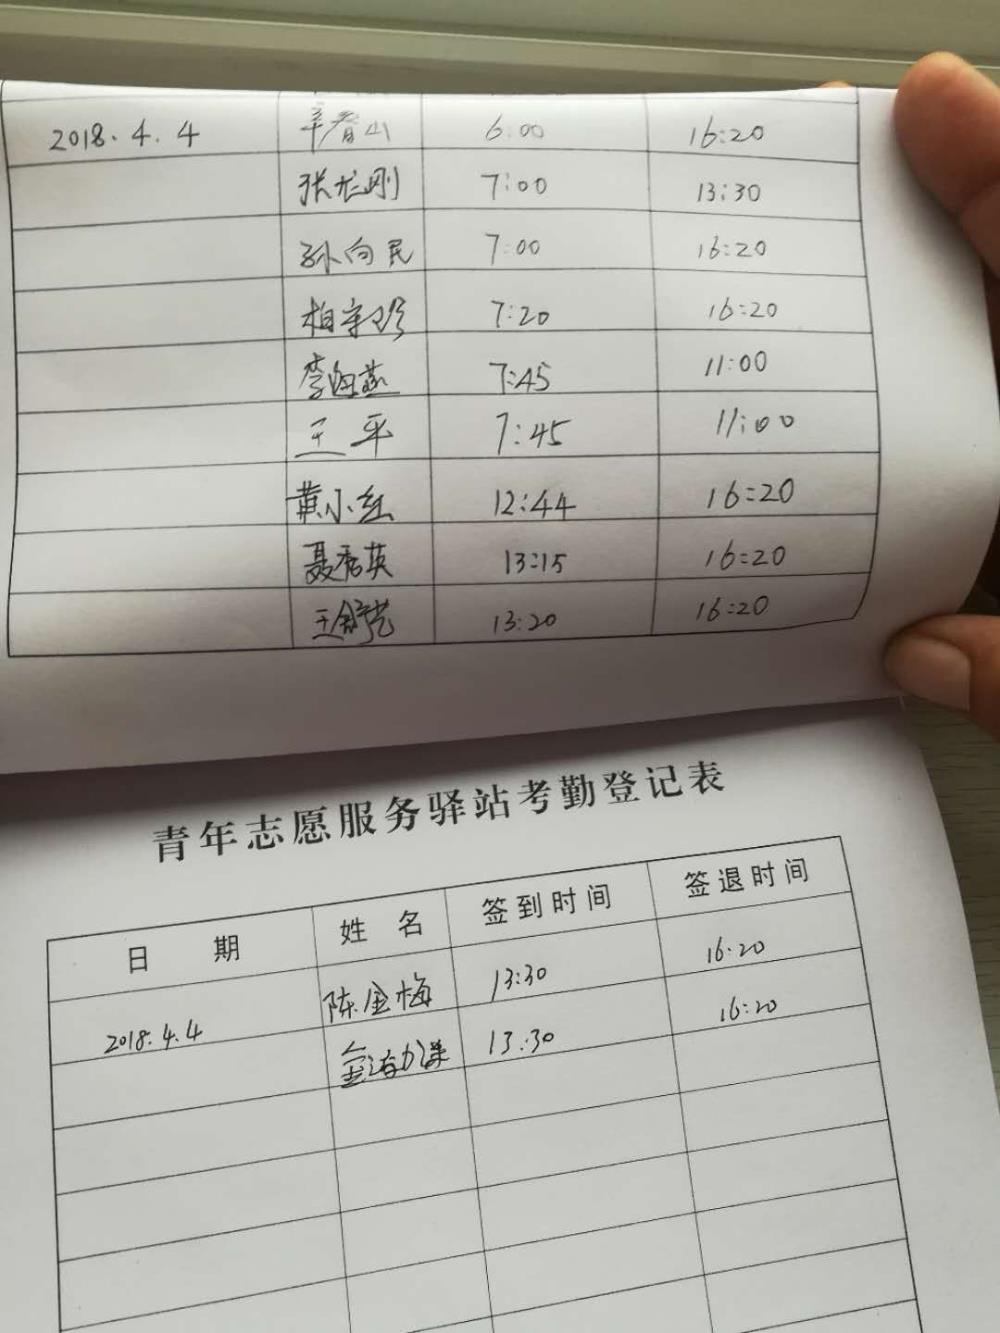 2018.4.4 辛春山 6:00 16:20
张龙刚 7:00 13:30
孙向民 7:00 16:20
柏宇珍 7:20 16:20
李海燕 7:45 11:00
王平 7:45 11:00
黄小红 12:44 16:20
聂秀英 13:15 16:20
王舒艺 13:20 16:20
青年志愿服务驿站考勤登记表
日期 姓名 签到时间 签退时间
2018.4.4 陈金梅 13:30 16:20
13:30 16:20